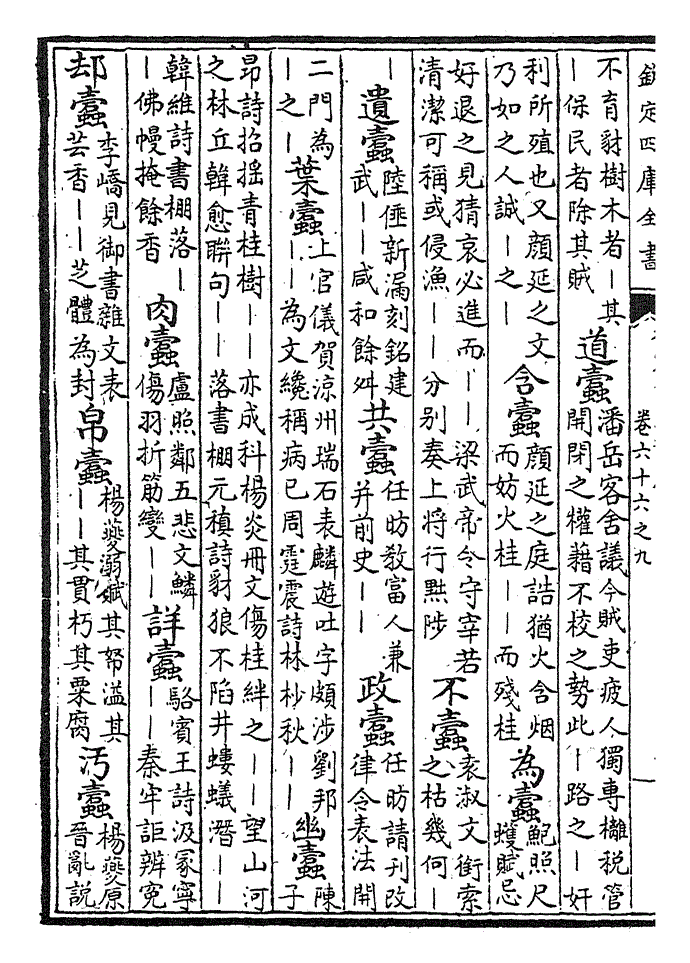 欽定四庫全書
卷六十六之九
不育豺樹木者｜其
｜保民者除其賊
道蠹
潘岳客舍議今賊吏疲人獨專櫳税管
開閉之權藉不校之勢此｜路之｜奸
利所殖也又顔延之文
乃如之人誠｜之｜
含蠹
顔延之庭誥猶火含烟
而妨火桂｜｜而殘桂
為蠹
鮑照尺
蠖賦忌
好退之見猜哀必進而｜｜梁武帝令守宰若
清潔可稱或侵漁｜｜分别奏上將行黜陟
不蠹
袁淑文銜索
之枯幾何｜
｜
遺蠹
陸倕新漏刻銘建
武｜｜咸和餘舛
共蠹
任昉教富人兼
并前史｜｜
政蠹
任昉請刊改
律令表法開
二門為
｜之｜
葉蠹
上官儀賀涼州瑞石表麟遊吐字頗涉劉邦
｜｜為文纔稱病已周霆震詩林杪秋｜｜
幽蠹
陳
子
昂詩招摇青桂樹｜｜亦成科楊炎冊文傷桂絆之｜｜望山河
之林丘韓愈聨句｜｜落書棚元稹詩豺狼不陷井螻蟻潛｜｜
韓維詩書棚落｜
｜佛幔掩餘香
肉蠹
盧照鄰五悲文鱗
傷羽折筋變｜｜
詳蠹
駱賓王詩汲冢寧
｜｜秦牢詎辨寃
却蠹
李嶠見御書雜文表
芸香｜｜芝體為封
帛蠹
楊夔溺賦其帑溢其
｜｜其貫朽其粟腐
汚蠹
楊夔原
晉亂説